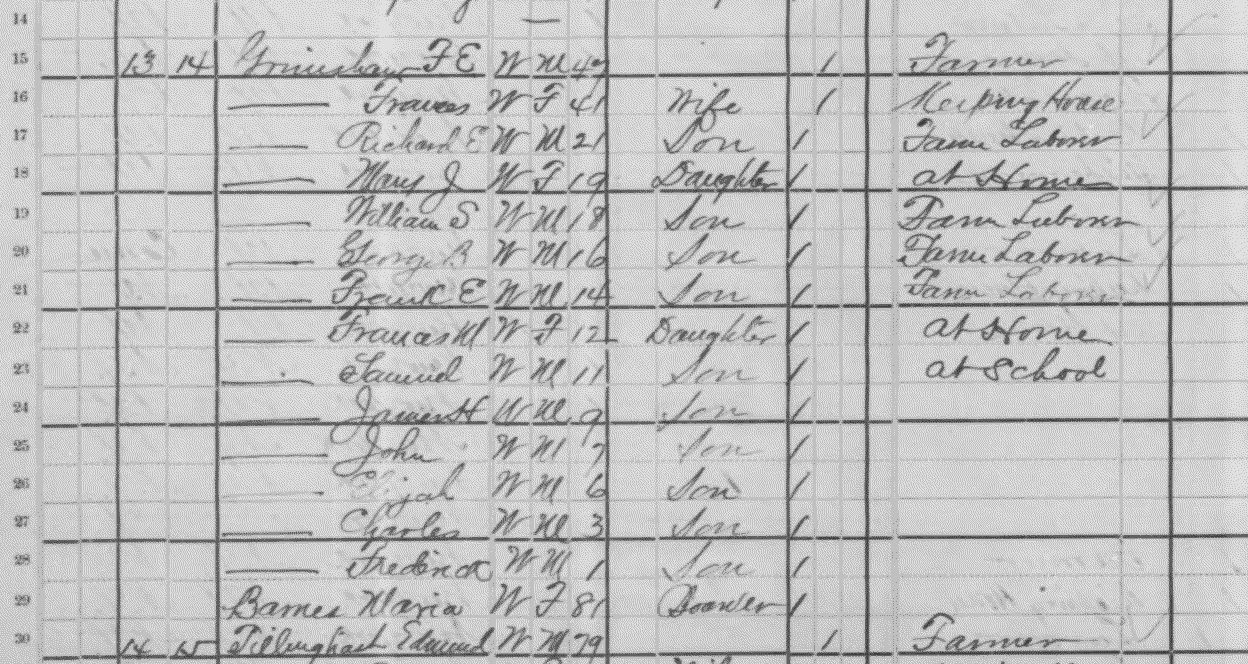 14 —
15 13 14 Grinshaw F E W M 47 1 Farmer
16 — Frances W F 41 Wife 1 Keeping House
17 — Richard E W M 21 Son 1 Farm Laborer
18 — Mary J W F 19 Daughter 1 at Home
19 — William S W M 18 Son 1 Farm Laborer
20 — George B W M 16 Son 1 Farm Laborer
21 — Frank E W M 14 Son 1 Farm Laborer
22 — Frances M W F 12 Daughter 1 at Home
23 — Samuel W M 11 Son 1 at School
24 — James H W M 9 Son 1
25 — John W M 7 Son 1
26 — Elijah W M 6 Son 1
27 — Charles W M 3 Son 1
28 — Frederick W M 1 Son 1
29 Barnes Maria W F 81 Boarder 1
30 14 15 Tillinghast Edmund W M 79 1 Farmer